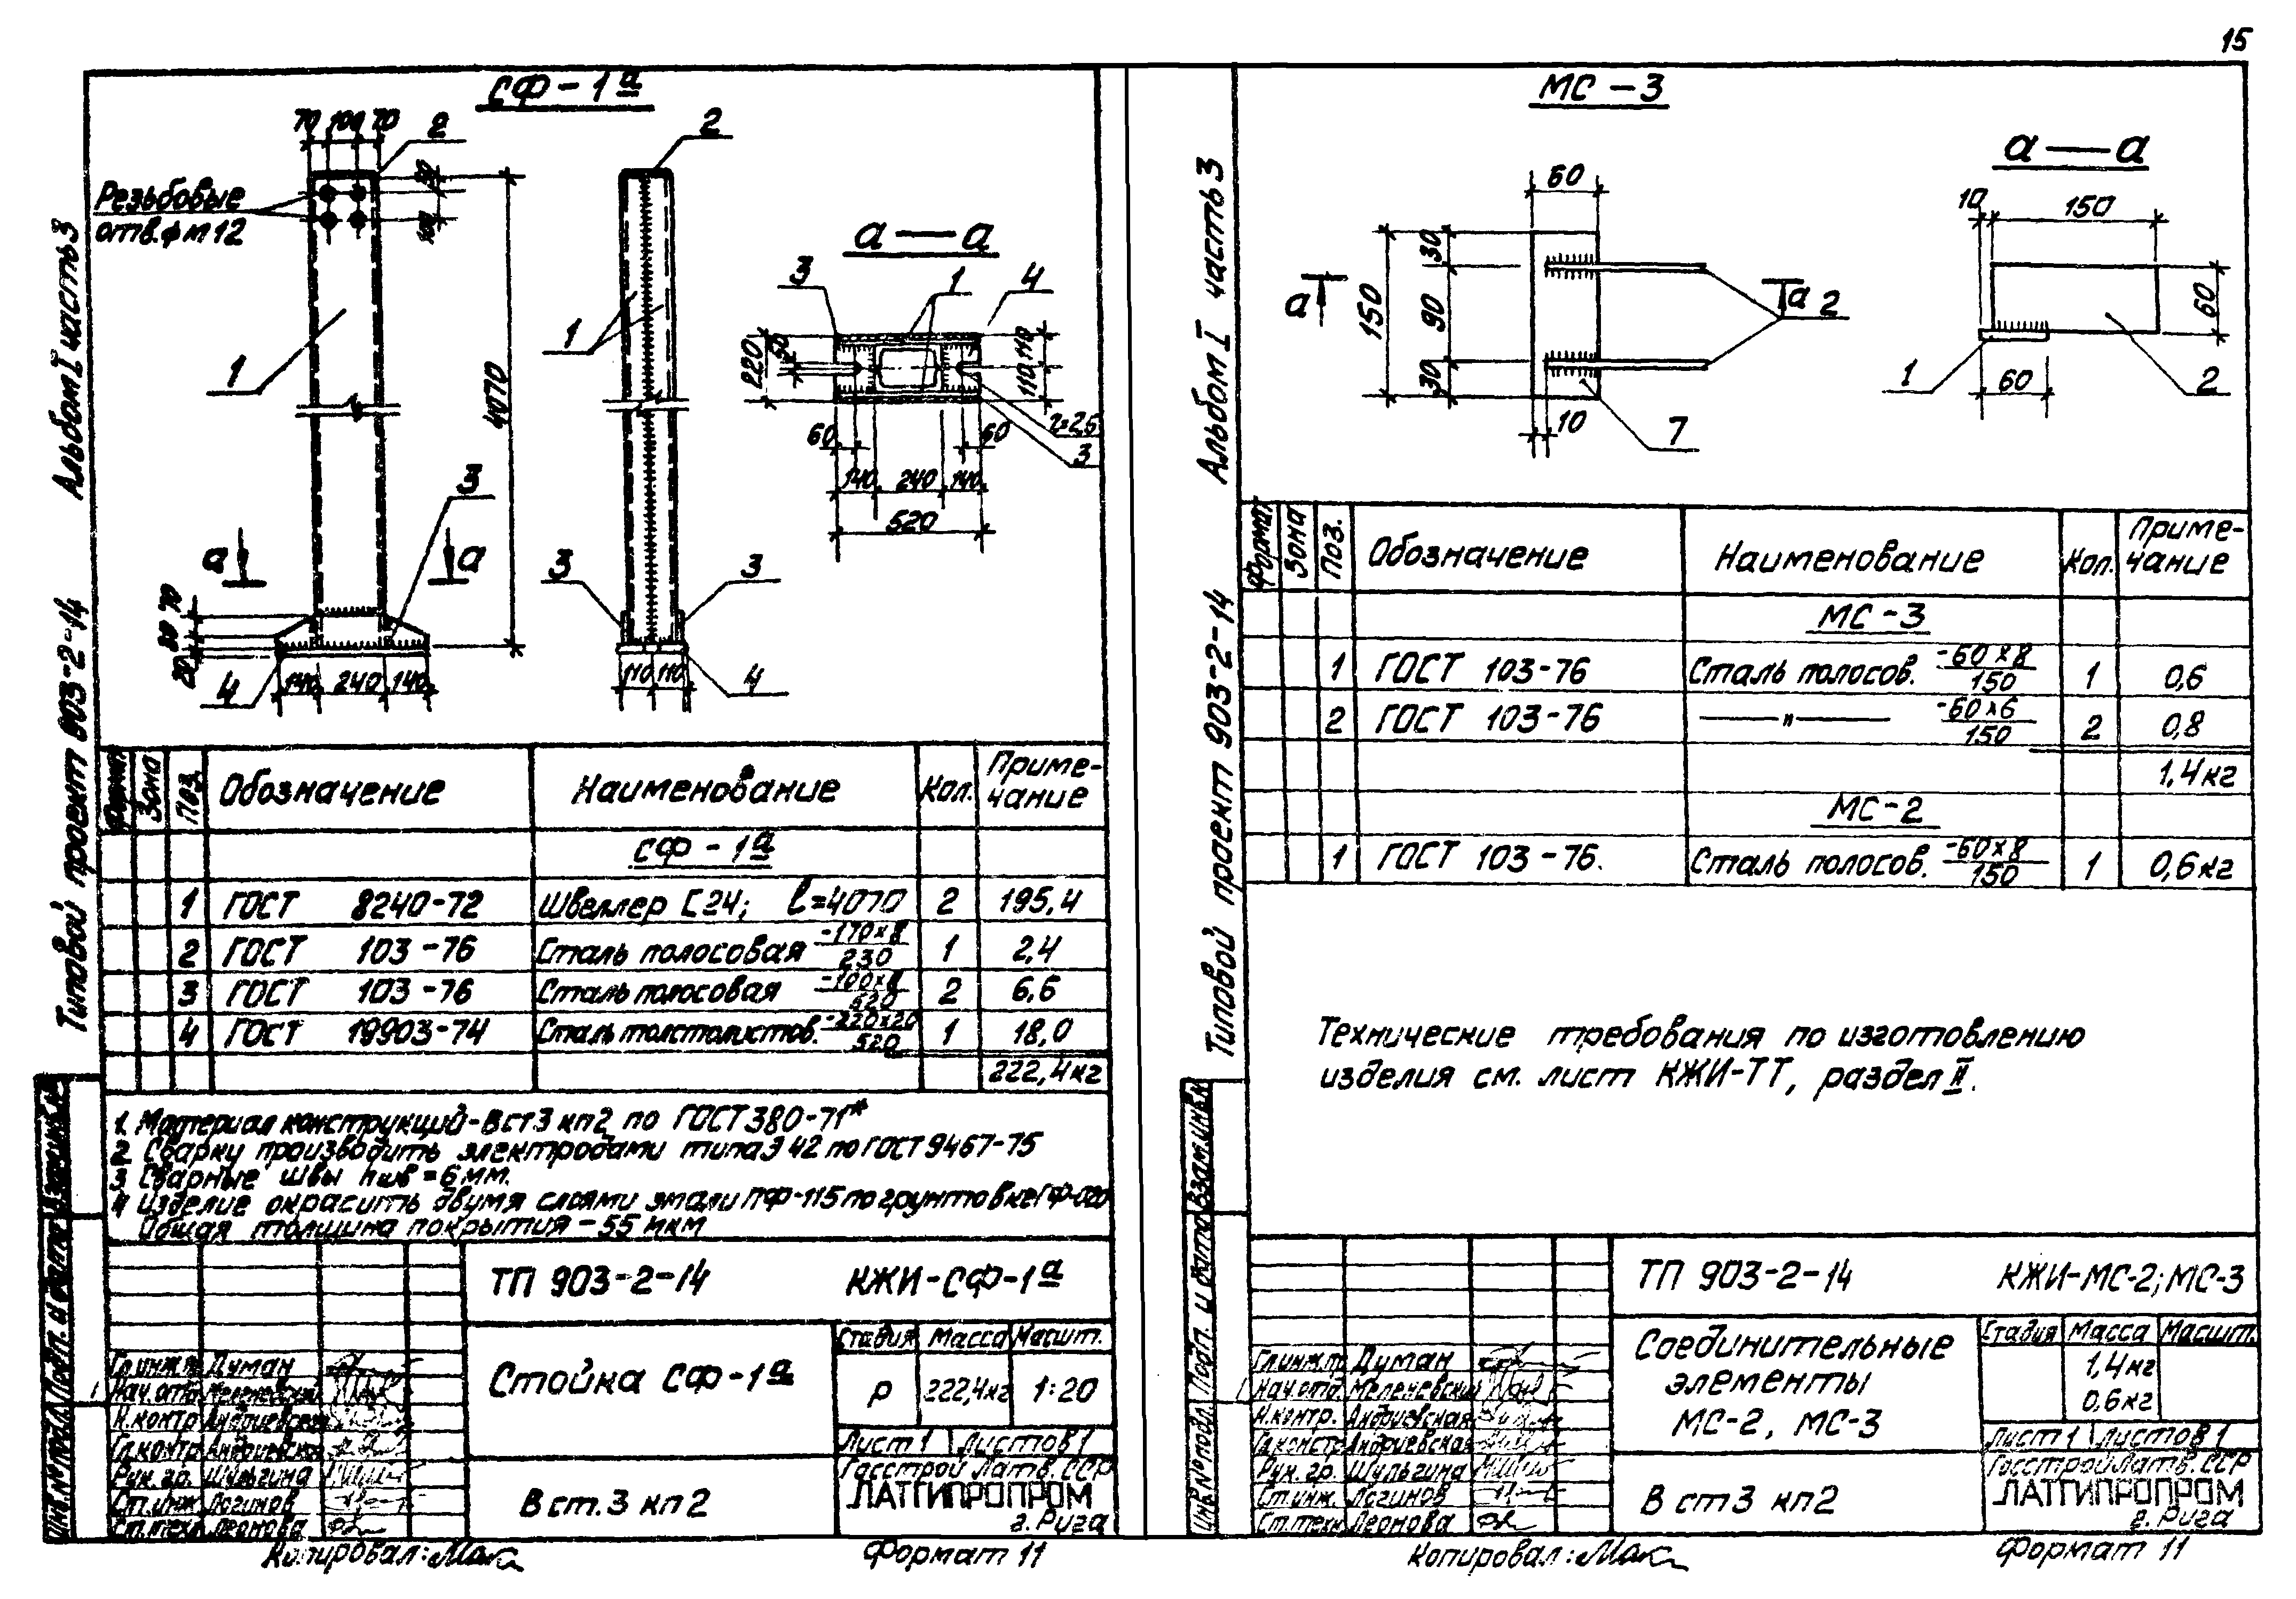 15
СФ-1а
70 100 70
2
2
Резьбовые
отв. ф м 12
50
100
1
1
4070
а
а
3
3
3
70
80
20
4
140 240 140
110 110
4
а — а
3
1
4
220
50
110 110
60
60
r=25
3
140 240 140
520
Формат
Зона
Поз.
Обозначение
Наименование
Кол.
Приме-
чание
СФ-1а
1 ГОСТ 8240-72 Швеллер [24; ℓ=4070 2 195,4
2 ГОСТ 103-76 Сталь полосовая -170×8/230 1 2,4
3 ГОСТ 103-76 Сталь полосовая -100×8/520 2 6,6
4 ГОСТ 19903-74 Сталь толстолистов. -220×20/520 1 18,0
222,4кг
1. Материал конструкций-Вст3 кп2 по ГОСТ 380-71*
2 Сварку производить электродами типа Э 42 по ГОСТ 9467-75
3 Сварные швы hшв=6мм.
4 Изделие окрасить двумя слоями эмали ПФ-115 по грунтовке ГФ-020
Общая толщина покрытия-55 мкм
ТП 903-2-14 КЖИ-СФ-1а
Стойка СФ-1а
Стадия Масса Масшт.
Р 222,4кг 1:20
Лист 1 Листов 1
Вст.3 кп2
Госстрой Латв. ССР
ЛАТГИПРОПРОМ
г. Рига
Гл.инж.п Думан
Нач.отд. Меленевский
Н.контр Андриевская
Гл.констр Андриевская
Рук. гр. Шульгина
Ст.инж. Логинов
Ст.техн. Леонова
Копировал:
Формат 11
Типовой проект 903-2-14 Альбом I часть 3
Инв.№ подл. Подп. и дата Взам.инв.№
МС-3
60
150
30
90
30
а
а
2
10
7
а — а
10
150
60
1
60
2
Формат
Зона
Поз.
Обозначение
Наименование
Кол.
Приме-
чание
МС-3
1 ГОСТ 103-76 Сталь полосов. -60×8/150 1 0,6
2 ГОСТ 103-76 —"— -60×6/150 2 0,8
1,4кг
МС-2
1 ГОСТ 103-76. Сталь полосов. -60×8/150 1 0,6кг
Технические требования по изготовлению
изделия см. лист КЖИ-ТТ, раздел II.
ТП 903-2-14 КЖИ-МС-2; МС-3
Соединительные
элементы
МС-2, МС-3
Стадия Масса Масшт.
1,4кг
0,6кг
Лист 1 Листов 1
Вст3 кп2
Госстрой Латв. ССР
ЛАТГИПРОПРОМ
г. Рига
Гл.инж.п Думан
Нач.отд. Меленевский
Н.контр. Андриевская
Гл.констр Андриевская
Рук. гр. Шульгина
Ст.инж. Логинов
Ст.техн Леонова
Копировал:
Формат 11
Типовой проект 903-2-14 Альбом I часть 3
Инв.№ подл. Подп. и дата Взам.инв.№